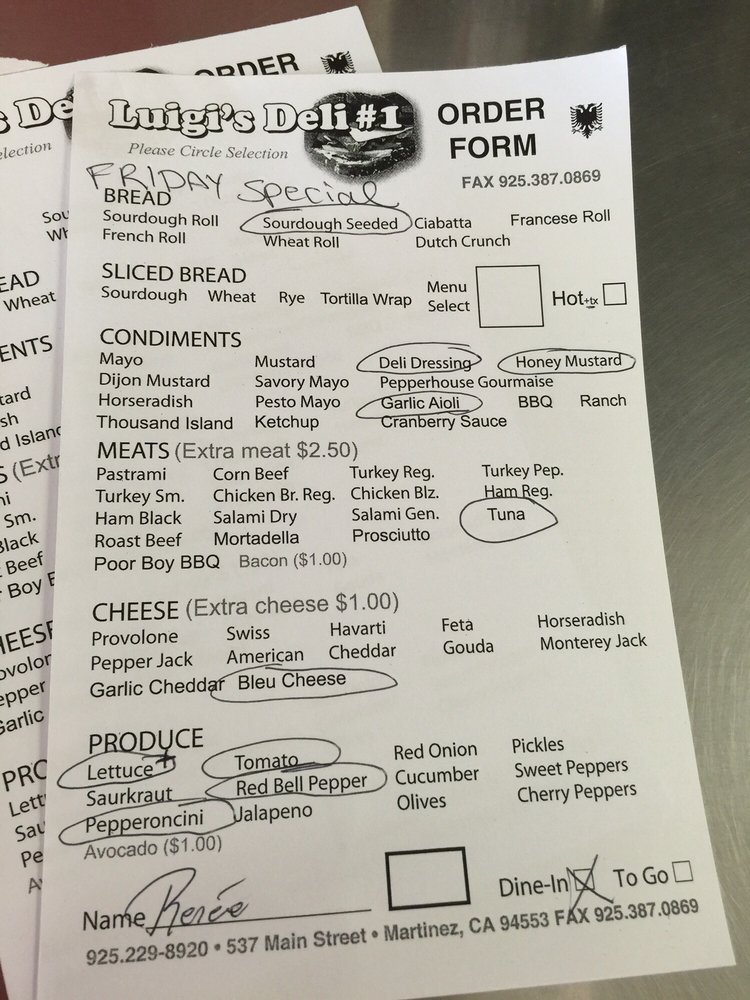 ORDER
s De
election
Luigi's Deli #1
ORDER
FORM
Please Circle Selection
FAX 925.387.0869
FRIDAY Special
BREAD
Sourdough Roll Sourdough Seeded Ciabatta Francese Roll
French Roll Wheat Roll Dutch Crunch
SLICED BREAD
Sourdough Wheat Rye Tortilla Wrap Menu Select Hot+tx
CONDIMENTS
Mayo Mustard Deli Dressing Honey Mustard
Dijon Mustard Savory Mayo Pepperhouse Gourmaise
Horseradish Pesto Mayo Garlic Aioli BBQ Ranch
Thousand Island Ketchup Cranberry Sauce
MEATS (Extra meat $2.50)
Pastrami Corn Beef Turkey Reg. Turkey Pep.
Turkey Sm. Chicken Br. Reg. Chicken Blz. Ham Reg.
Ham Black Salami Dry Salami Gen. Tuna
Roast Beef Mortadella Prosciutto
Poor Boy BBQ Bacon ($1.00)
CHEESE (Extra cheese $1.00)
Provolone Swiss Havarti Feta Horseradish
Pepper Jack American Cheddar Gouda Monterey Jack
Garlic Cheddar Bleu Cheese
PRODUCE
Lettuce + Tomato Red Onion Pickles
Saurkraut Red Bell Pepper Cucumber Sweet Peppers
Pepperoncini Jalapeno Olives Cherry Peppers
Avocado ($1.00)
Dine-In To Go
Name Renée
925.229-8920 • 537 Main Street • Martinez, CA 94553 FAX 925.387.0869
Sou
Wh
EAD
Wheat
ENTS
tard
sh
d Island
S (Extr
ni
Sm.
Black
Beef
Boy B
HEESE
ovolon
epper
Garlic
PRO
Lett
Sau
Pe
A